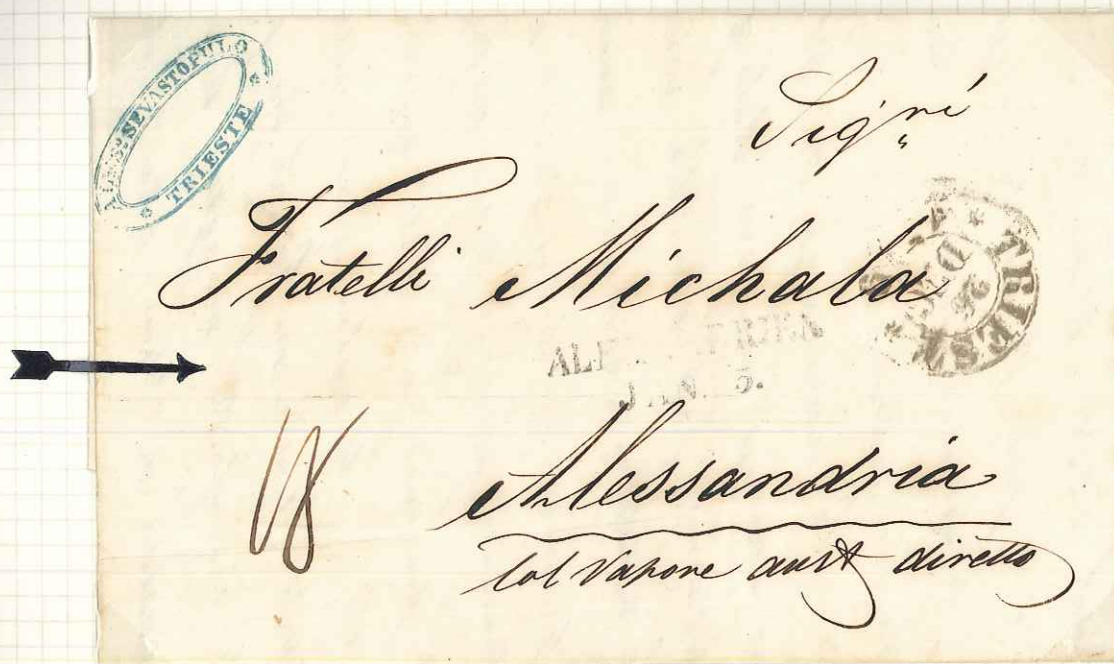 ALESSO. SEVASTOPULO
TRIESTE
Sigri
Fratelli Michala
TRIEST
26
JAN. 5.
18
Alessandria
Col Vapore aust diretto